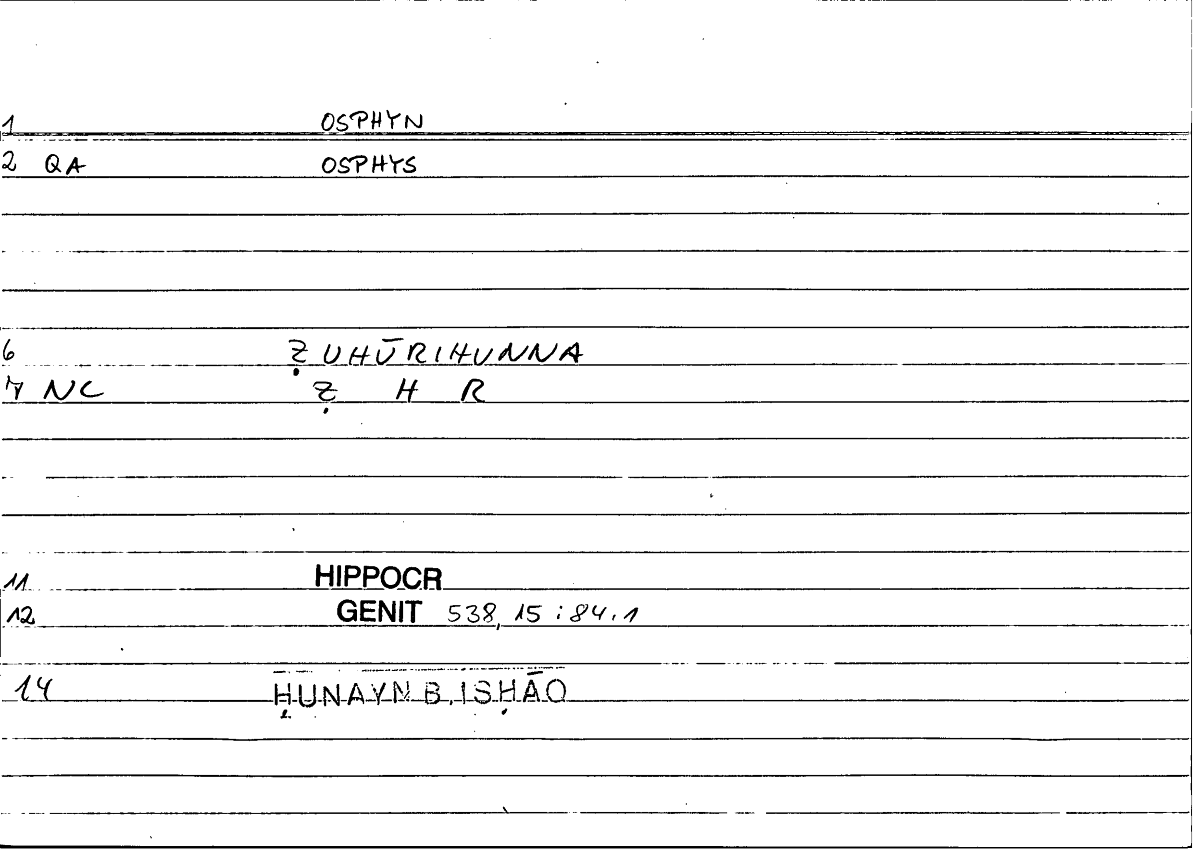 1 OSPHYN
2 QA OSPHYS
6 ẒUHŪRIHUNNA
7 NC Ẓ H R
11 HIPPOCR
12 GENIT 538, 15 : 84.1
14 ḤUNAYN B. ISḤĀQ